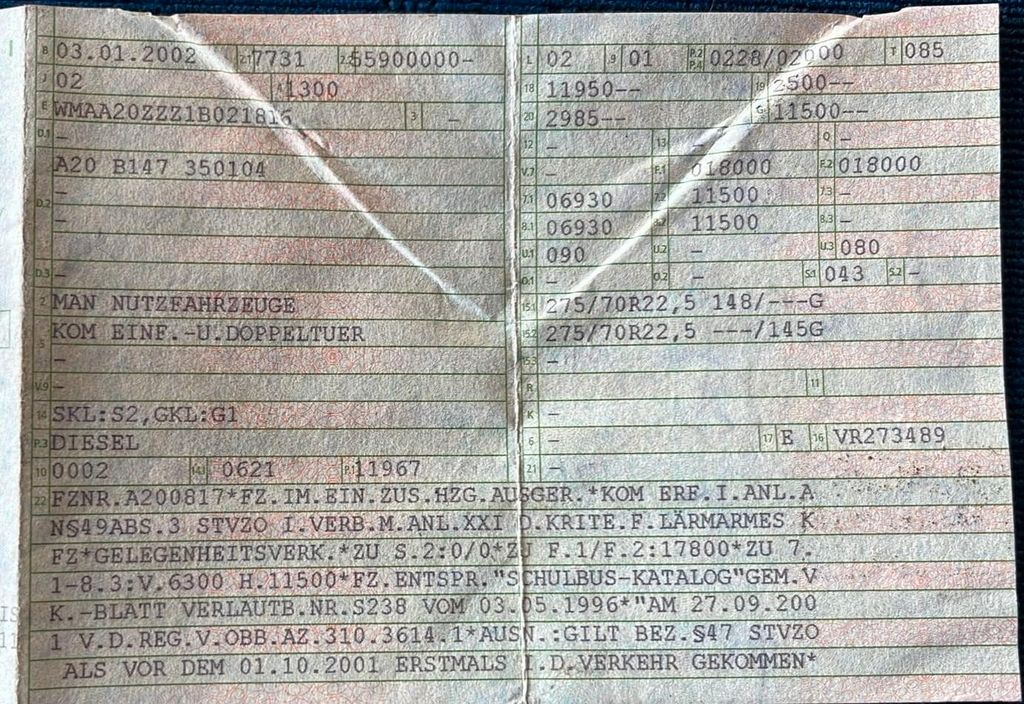 B 03.01.2002 2.1 7731 2.2 55900000-
J 02 4 1300
E WMAA20ZZZ1B021816 3 -
D.1 -
A20 B147 350104
D.2 -
-
D.3 -
2 MAN NUTZFAHRZEUGE
5 KOM EINF.-U.DOPPELTUER
-
V.9 -
14 SKL:S2,GKL:G1
P.3 DIESEL
10 0002 14.1 0621 P.1 11967
L 02 9 01 P.2 P.4 0228/02000 T 085
18 11950-- 19 2500--
20 2985-- G 11500--
12 - 13 - Q -
V.7 - F.1 018000 F.2 018000
7.1 06930 7.2 11500 7.3 -
8.1 06930 8.2 11500 8.3 -
U.1 090 U.2 - U.3 080
O.1 - O.2 - S.1 043 S.2 -
15.1 275/70R22,5 148/---G
15.2 275/70R22,5 ---/145G
15.3 -
R 11
K -
6 - 17 E 16 VR273489
21 -
22 FZNR.A200817*FZ.IM.EIN.ZUS.HZG.AUSGER.*KOM ERF.I.ANL.A
N§49ABS.3 STVZO I.VERB.M.ANL.XXI D.KRITE.F.LÄRMARMES K
FZ*GELEGENHEITSVERK.*ZU S.2:0/0*ZU F.1/F.2:17800*ZU 7.
1-8.3:V.6300 H.11500*FZ.ENTSPR."SCHULBUS-KATALOG"GEM.V
K.-BLATT VERLAUTB.NR.S238 VOM 03.05.1996*"AM 27.09.200
1 V.D.REG.V.OBB.AZ.310.3614.1*AUSN.:GILT BEZ.§47 STVZO
ALS VOR DEM 01.10.2001 ERSTMALS I.D.VERKEHR GEKOMMEN*